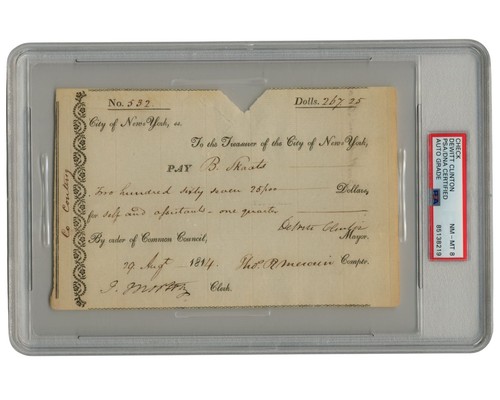 No. 532 Dolls. 267 25
City of New-York, ss.
To the Treasurer of the City of New-York,
PAY B. Skaats
Two hundred sixty seven 25/100 Dollars,
for self and assistants - one quarter
DeWitt Clinton
By order of Common Council, Mayor.
29 Augt 1814. Thos. R Mercein Comptr.
Clerk.
CHECK
DEWITT CLINTON
PSA/DNA CERTIFIED
AUTO GRADE
NM - MT 8
85138219
PSA